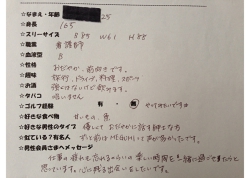 ☆なまえ・年齢 25
☆身長 165
☆スリーサイズ B85 W61 H88
☆職業 看護師
☆血液型 B
☆性格 おだやか、前向きです。
☆趣味 旅行、ドライブ、料理、スポーツ
☆お酒 強くはないけど飲めます。
☆タバコ 吸いません
☆ゴルフ経験 有・無 やってみたいです
☆好きな食べ物 甘いもの、魚
☆好きな男性のタイプ 優しくて おだやかに話す紳士な方
☆似ている？有名人
☆男性会員さまへメッセージ
仕事の疲れも忘れるくらいの楽しい時間を一緒に過ごせたらと
思っています。心に残る出会いをしたいです。